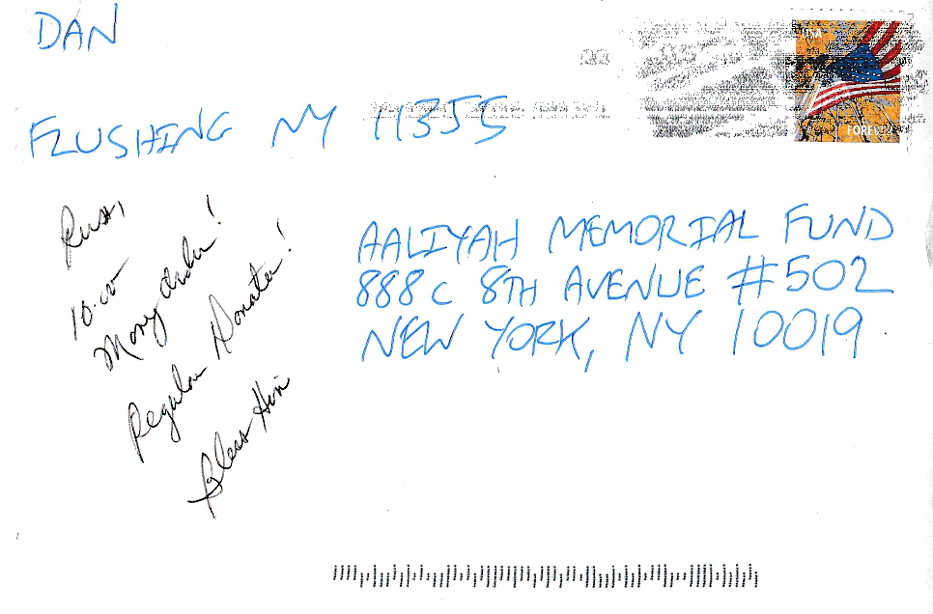 DAN
FLUSHING NY 11355
USA
FOREVER
Russ,
10.00
Money Order!
Regular Donator!
Bless Him
AALIYAH MEMORIAL FUND
888C 8TH AVENUE #502
NEW YORK, NY 10019